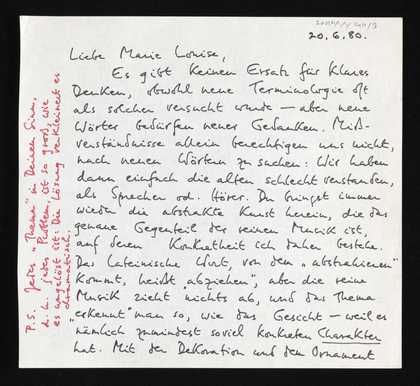 20.6.80.
Liebe Marie Louise,
Es gibt keinen Ersatz für klares
Denken, obwohl neue Terminologie oft
als solcher versucht wurde – aber neue
Wörter bedürfen neuer Gedanken. Miß-
verständnisse allein berechtigen uns nicht,
nach neuen Wörtern zu suchen: Wir haben
dann einfach die alten schlecht verstanden,
als Sprecher od. Hörer. Du bringst immer
wieder die abstrakte Kunst herein, die das
genaue Gegenteil der reinen Musik ist,
auf deren Konkretheit ich daher bestehe.
Das lateinische Wort, von dem „abstrahieren"
kommt, heißt „abziehen", aber die reine
Musik zieht nichts ab, und das Thema
„erkennt" man so, wie das Gesicht – weil es
nämlich zumindest soviel konkreten Charakter
hat. Mit der Dekoration und dem Ornament
P.S. Jedes „Thema" in Deinem Sinn,
d.h. jedes Problem, ist so groß, wie
es ungelöst ist: Die Lösung verkleinert es
dramatisch.